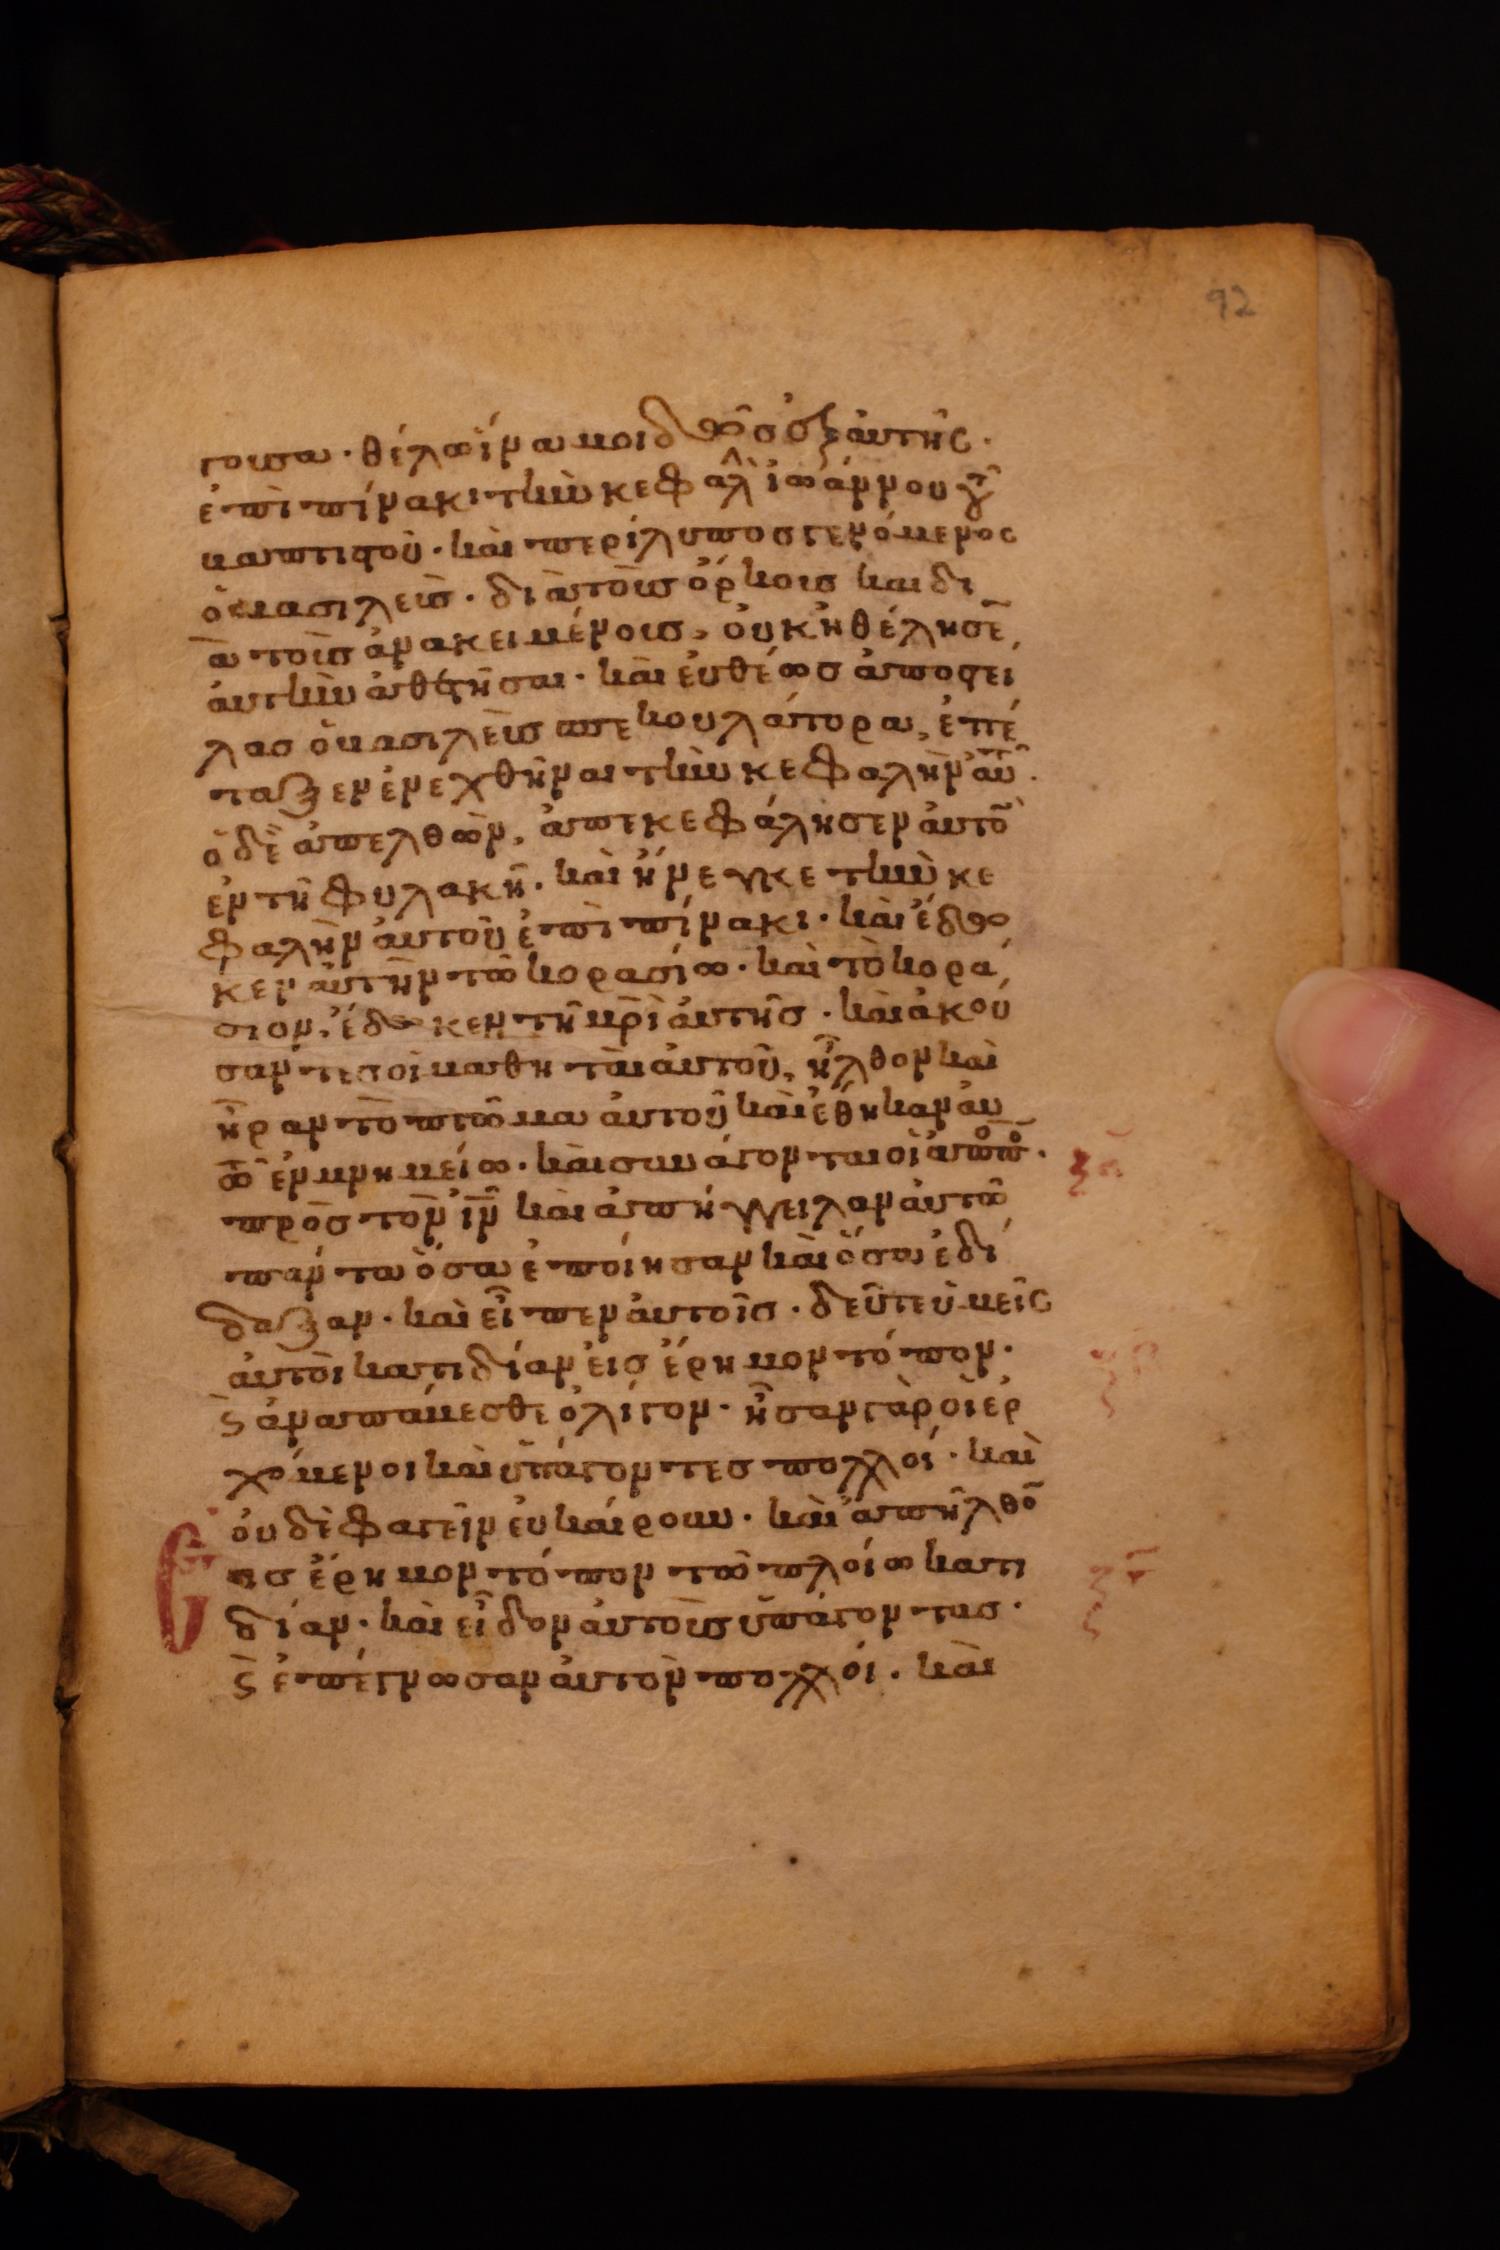 92
γουσα· θέλω ἵνα μοι δῶσ ἐξ αὐτῆς·
ἐπὶ πίνακι τὴν κεφαλ ἰωάννου τ
βαπτιστοῦ· καὶ περίλυποσ γενόμενος
ὁ βασιλεὺσ· διὰ τοὺσ ὅρκουσ καὶ δι
ὰ τοὺσ ἀνακειμένουσ, οὐκ ἠθέλησε
αὐτὴν ἀθετῆσαι· καὶ εὐθέωσ ἀποστεί
λασ ὁ βασιλεὺσ σπεκουλάτορα, ἐπέ
ταξεν ἐνεχθῆναι τὴν κεφαλὴν αὐτ·
ὁ δὲ ἀπελθὼν, ἀπεκεφάλησεν αὐτὸ
ἐν τῆ φυλακῆ· καὶ ἤνεγκε τὴν κε
φαλὴν αὐτοῦ ἐπὶ πίνακι· καὶ ἔδω
κεν αὐτὴν τῶ κορασίω· καὶ τὸ κορά
σιον, ἔδωκεν τῆ μρὶ αὐτῆσ· καὶ ἀκού
σαντεσ οἱ μαθηταὶ αὐτοῦ, ἦλθον καὶ
ἦραν τὸ πτῶμα αὐτοῦ καὶ ἔθηκαν αὐ
τῶ ἐν μνημείω· καὶ συνάγονται οἱ ἀποπο· ξα
πρὸσ τὸν ιν καὶ ἀπήγγειλαν αὐτῶ
πάντα ὅσα ἐποίησαν καὶ ὅσα ἐδί
δαξαν· καὶ εἶπεν αὐτοῖσ· δεῦτε ὑμεῖς
αὐτοὶ κατιδίαν εἰσ ἔρημον τόπον·
ϛ ἀναπάυεσθε ὀλίγον· ἦσαν γὰρ οἱ ἐρ
χόμενοι καὶ ὑπάγοντεσ πολλοί· καὶ
οὐδὲ φαγεῖν εὐκαίρουν· καὶ ἀπῆλθο
εισ ἔρημον τόπον τῶ πλοίω κατι
δίαν· καὶ εἶδον αὐτοὺσ ὑπάγοντασ·
ϛ ἐπέγνωσαν αὐτὸν πολλοί· καὶ